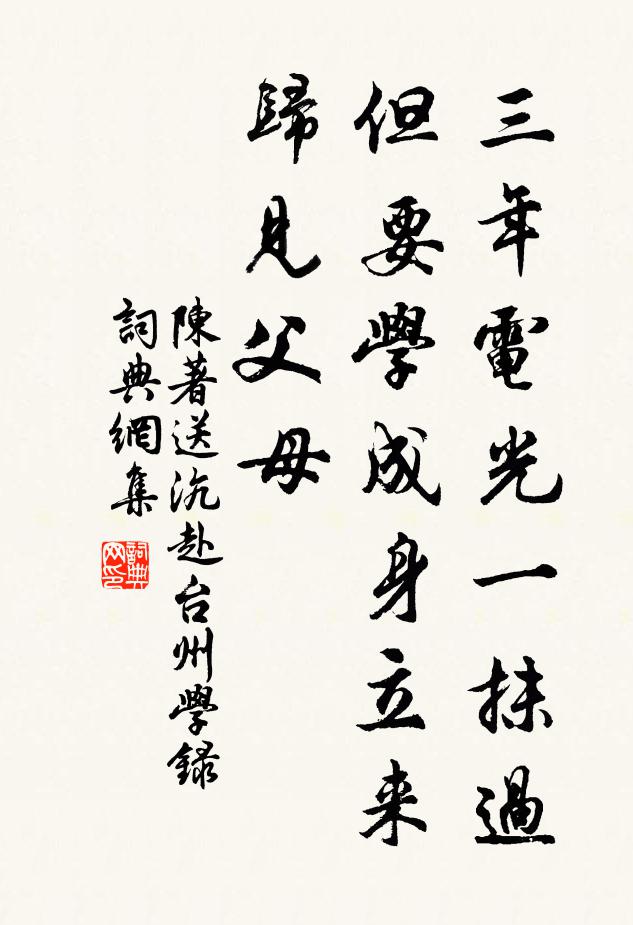 三年電光一抹過
但要學成身立来
歸見父母
陳著送沆赴台州學録
詞典網集
詞典网印